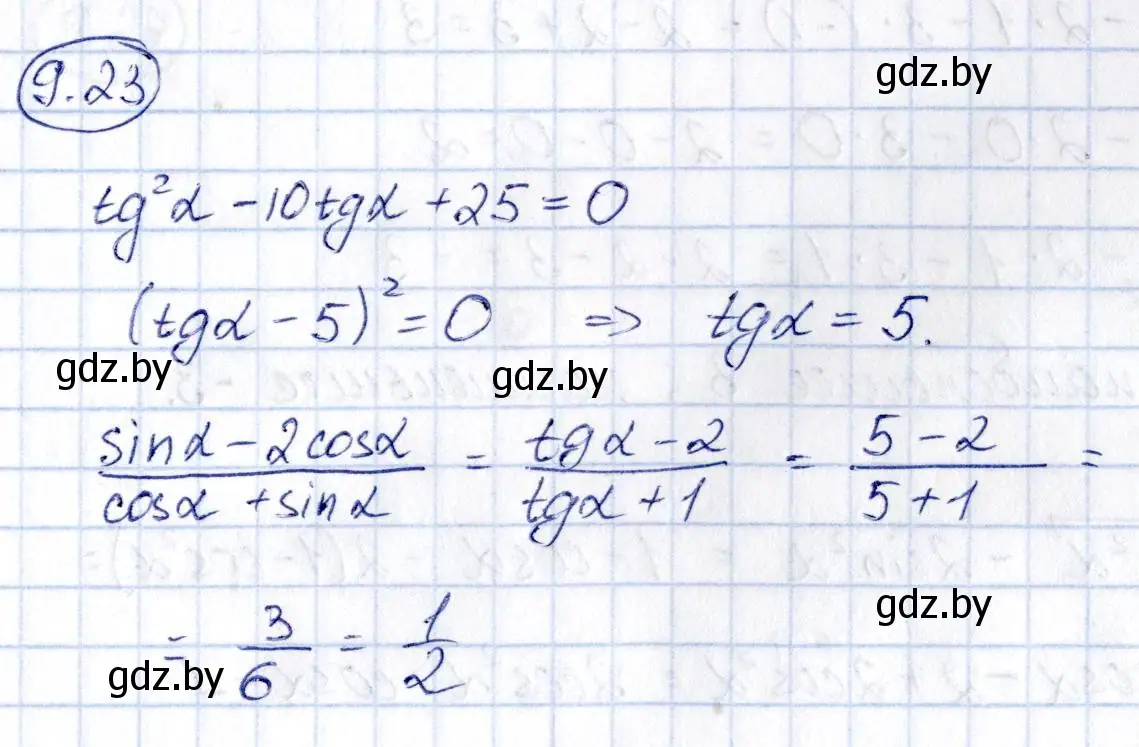 9.23
gdz.by
tg²α - 10tgα + 25 = 0
(tgα - 5)² = 0 ⇒ tgα = 5.
gdz.by
gdz.by
(sinα - 2cosα)/(cosα + sinα) = (tgα - 2)/(tgα + 1) = (5 - 2)/(5 + 1) =
gdz.by
= 3/6 = 1/2
gdz.by